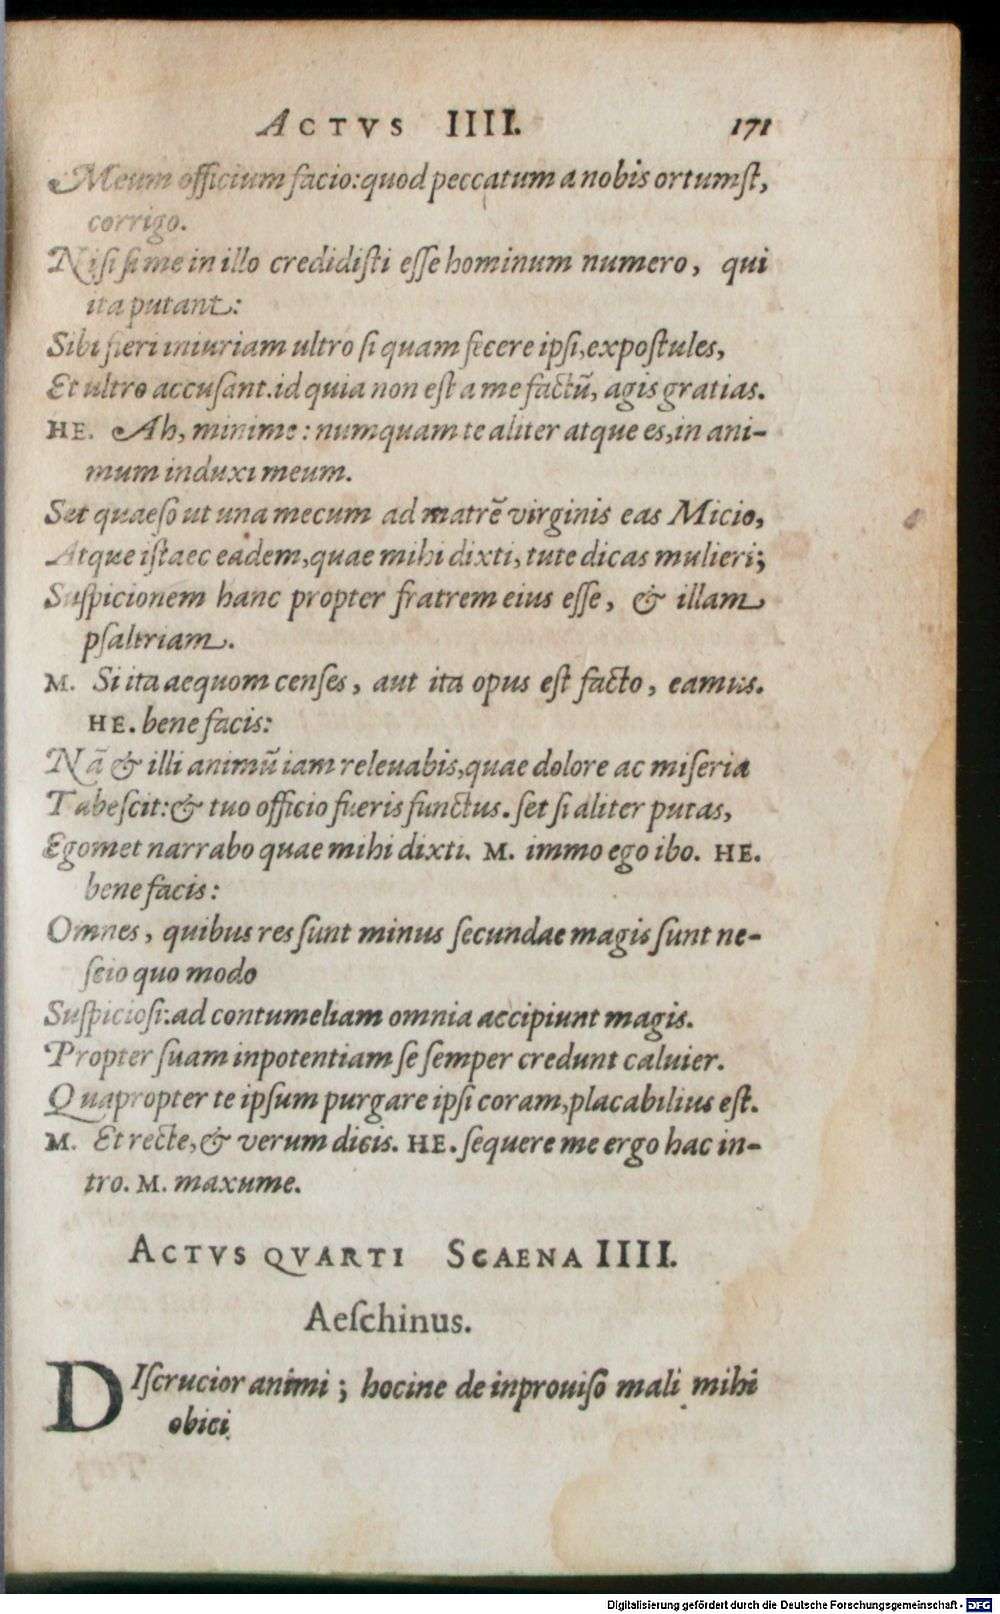 ACTVS IIII. 171
Meum officium facio: quod peccatum a nobis ortumst,
corrigo.
Nisi si me in illo credidisti esse hominum numero, qui
ita putant:
Sibi fieri iniuriam ultro si quam fecere ipsi, expostules,
Et ultro accusant. id quia non est a me factū, agis gratias.
HE. Ah, minime: numquam te aliter atque es, in ani-
mum induxi meum.
Set quaeso ut una mecum ad matrē virginis eas Micio,
Atque istaec eadem, quae mihi dixti, tute dicas mulieri;
Suspicionem hanc propter fratrem eius esse, & illam
psaltriam.
M. Si ita aequom censes, aut ita opus est facto, eamus.
HE. bene facis:
Nā & illi animū iam relevabis, quae dolore ac miseria
Tabescit: & tuo officio fueris functus. set si aliter putas,
Egomet narrabo quae mihi dixti. M. immo ego ibo. HE.
bene facis:
Omnes, quibus res sunt minus secundae magis sunt ne-
scio quo modo
Suspiciosi: ad contumeliam omnia accipiunt magis.
Propter suam inpotentiam se semper credunt caluier.
Quapropter te ipsum purgare ipsi coram, placabilius est.
M. Et recte, & verum dicis. HE. sequere me ergo hac in-
tro. M. maxume.
ACTVS QVARTI SCAENA IIII.
Aeschinus.
DIscrucior animi; hocine de inproviso mali mihi
obici
Digitalisierung gefördert durch die Deutsche Forschungsgemeinschaft - DFG